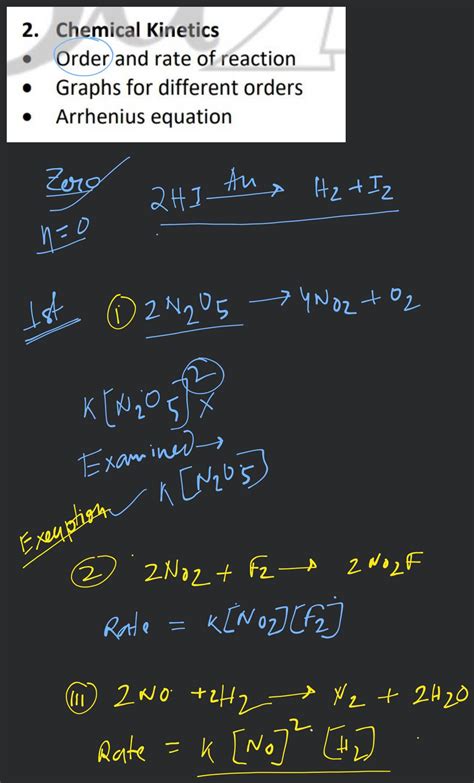 2. Chemical Kinetics
• Order and rate of reaction
• Graphs for different orders
• Arrhenius equation
Zero
n=0
2HI Au→ H2 + I2
1st
(i) 2N2O5 → 4NO2 + O2
K[N2O5]2 x
Examined →
K[N2O5]
Exeuption
(2) 2NO2 + F2 → 2NO2F
Rate = K[NO2][F2]
(iii) 2NO + 2H2 → N2 + 2H2O
Rate = K [NO]2 [H2]